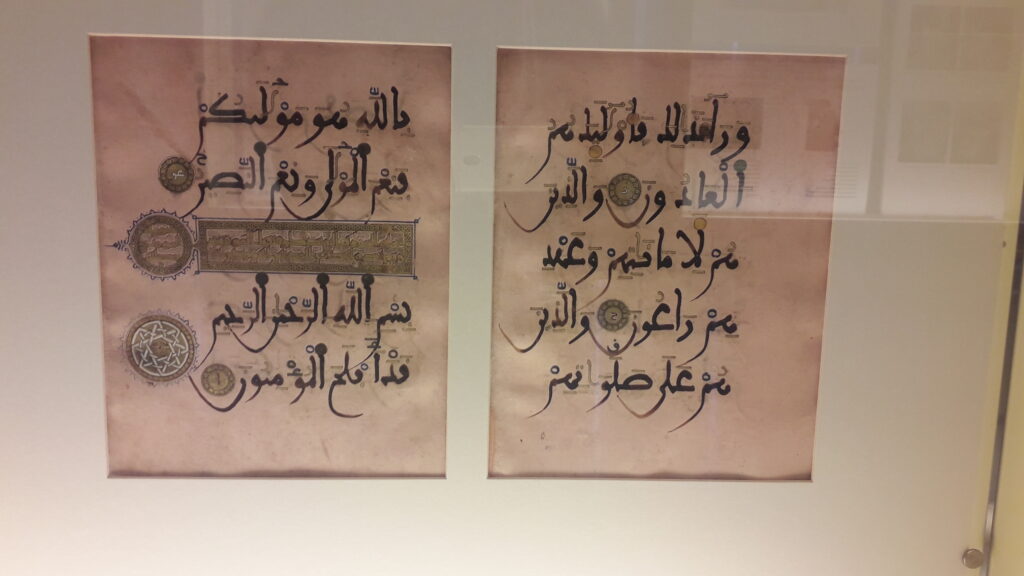 بالله هو موليكم
فنعم المولى ونعم النصير
بسم الله الرحمن الرحيم
قد أفلح المؤمنون
ورا ذلك فأوليك هم
العادون والذين
هم لأمانتهم وعهد
هم راعون والذين
هم على صلواتهم